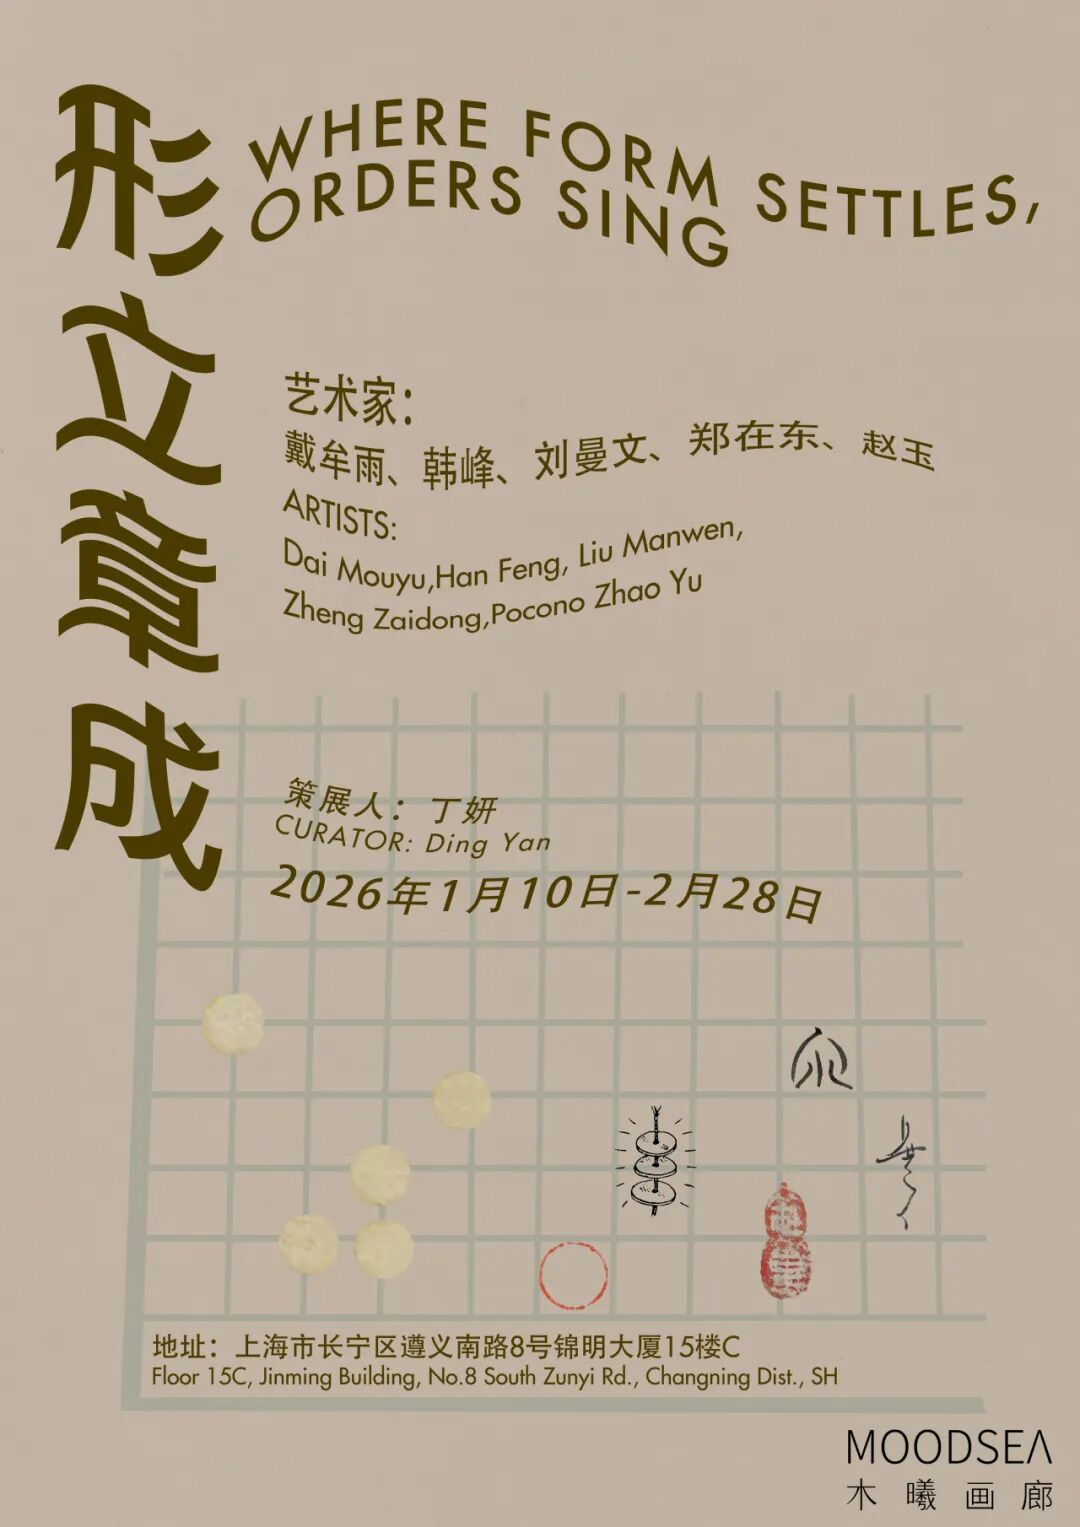 形立章成
WHERE FORM SETTLES,
ORDERS SING
艺术家：
戴牟雨、韩峰、刘曼文、郑在东、赵玉
ARTISTS:
Dai Mouyu,Han Feng, Liu Manwen,
Zheng Zaidong,Pocono Zhao Yu
策展人：丁妍
CURATOR: Ding Yan
2026年1月10日-2月28日
地址：上海市长宁区遵义南路8号锦明大厦15楼C
Floor 15C, Jinming Building, No.8 South Zunyi Rd., Changning Dist., SH
MOODSEA
木曦画廊